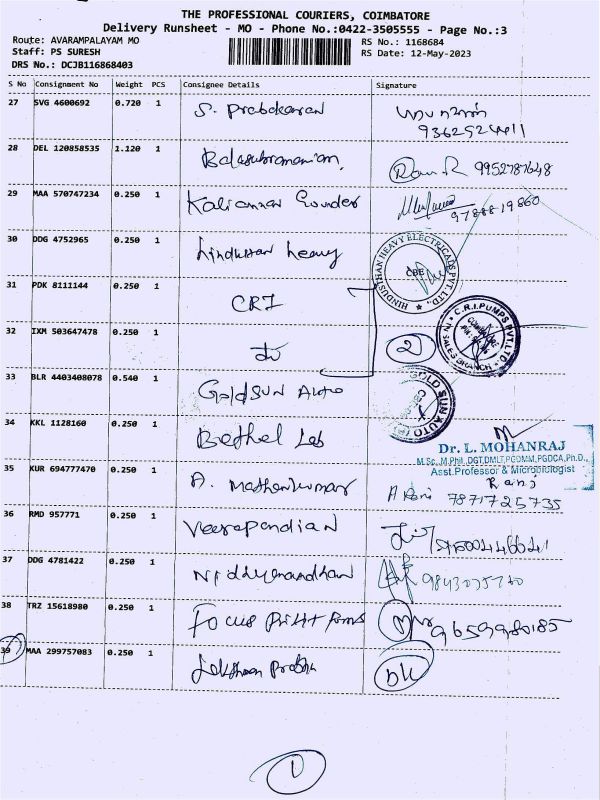 THE PROFESSIONAL COURIERS, COIMBATORE
Delivery Runsheet - MO - Phone No.:0422-3505555 - Page No.:3
Route: AVARAMPALAYAM MO
RS No.: 1168684
Staff: PS SURESH
RS Date: 12-May-2023
DRS No.: DCJB116868403
S No Consignment No Weight PCS Consignee Details Signature
27 SVG 4600692 0.720 1 S. Prabakaran
9362924411
28 DEL 120858535 1.120 1 Balasubramanian, 9952787648
29 MAA 570747234 0.250 1 Kaliannan Gounder 9788819860
30 DDG 4752965 0.250 1 hindustan heavy
HINDUSTHAN HEAVY ELECTRICALS PVT. LTD.,
CBE
31 PDK 8111144 0.250 1 CRI
C.R.I. PUMPS PVT. LTD
COIMBATORE
SALES BRANCH
32 IXM 503647478 0.250 1 2
33 BLR 4403408078 0.540 1 Goldsun Auto
GOLD SUN AUTO
34 KKL 1128160 0.250 1 Bethel Lab
Dr. L. MOHANRAJ
M.Sc.,M.Phil.,DGT,DMLT,PGDMM,PGDCA,Ph.D.,
Asst.Professor & Microbiologist
35 KUR 694777470 0.250 1 A. Mathankumar
Rani
A Rani 7871725735
36 RMD 957771 0.250 1 Veerapandian
37 DDG 4781422 0.250 1 Nidhyanandhan
38 TRZ 15618980 0.250 1 Focus print forms 9659980185
39 MAA 299757083 0.250 1
1